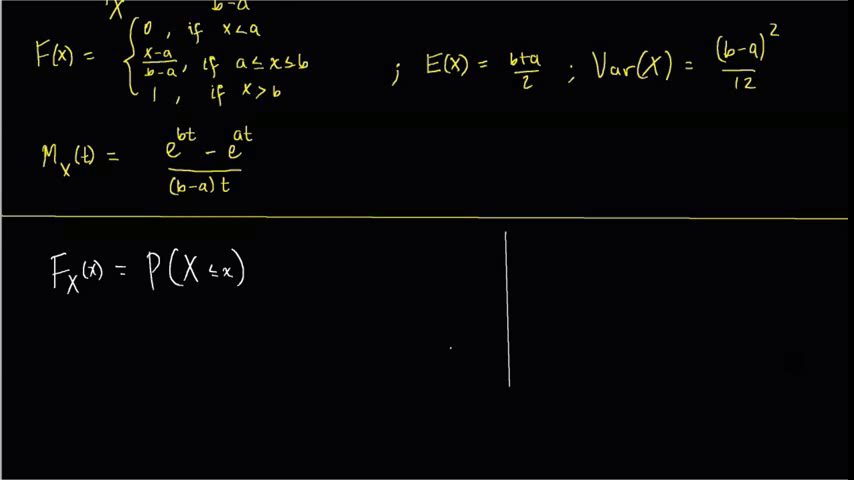 X b-a
F(x) = { 0, if x<a
x-a/b-a, if a≤x≤b
1, if x>b
; E(X) = b+a/2 ; Var(X) = (b-a)²/12
M_X(t) = e^bt - e^at / (b-a)t
F_X(x) = P(X ≤ x)